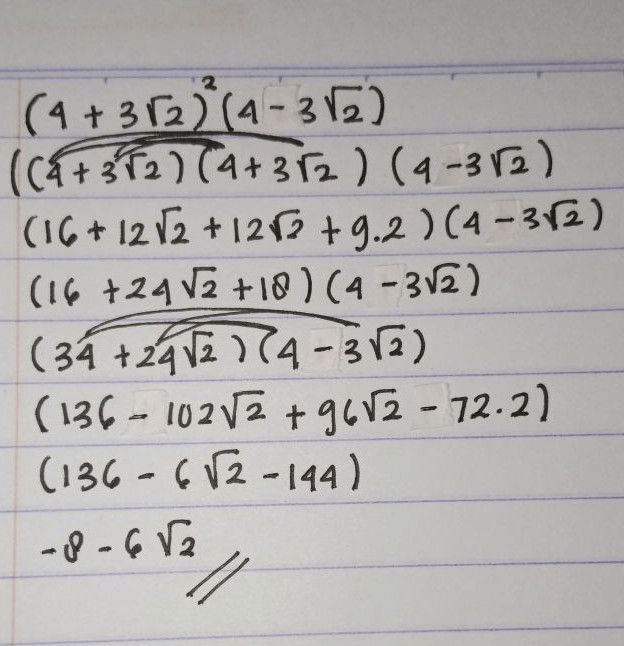 (4 + 3√2)²(4 - 3√2)
((4 + 3√2)(4 + 3√2)(4 - 3√2)
(16 + 12√2 + 12√2 + 9.2)(4 - 3√2)
(16 + 24√2 + 18)(4 - 3√2)
(34 + 24√2)(4 - 3√2)
(136 - 102√2 + 96√2 - 72.2)
(136 - 6√2 - 144)
-8 - 6√2 //